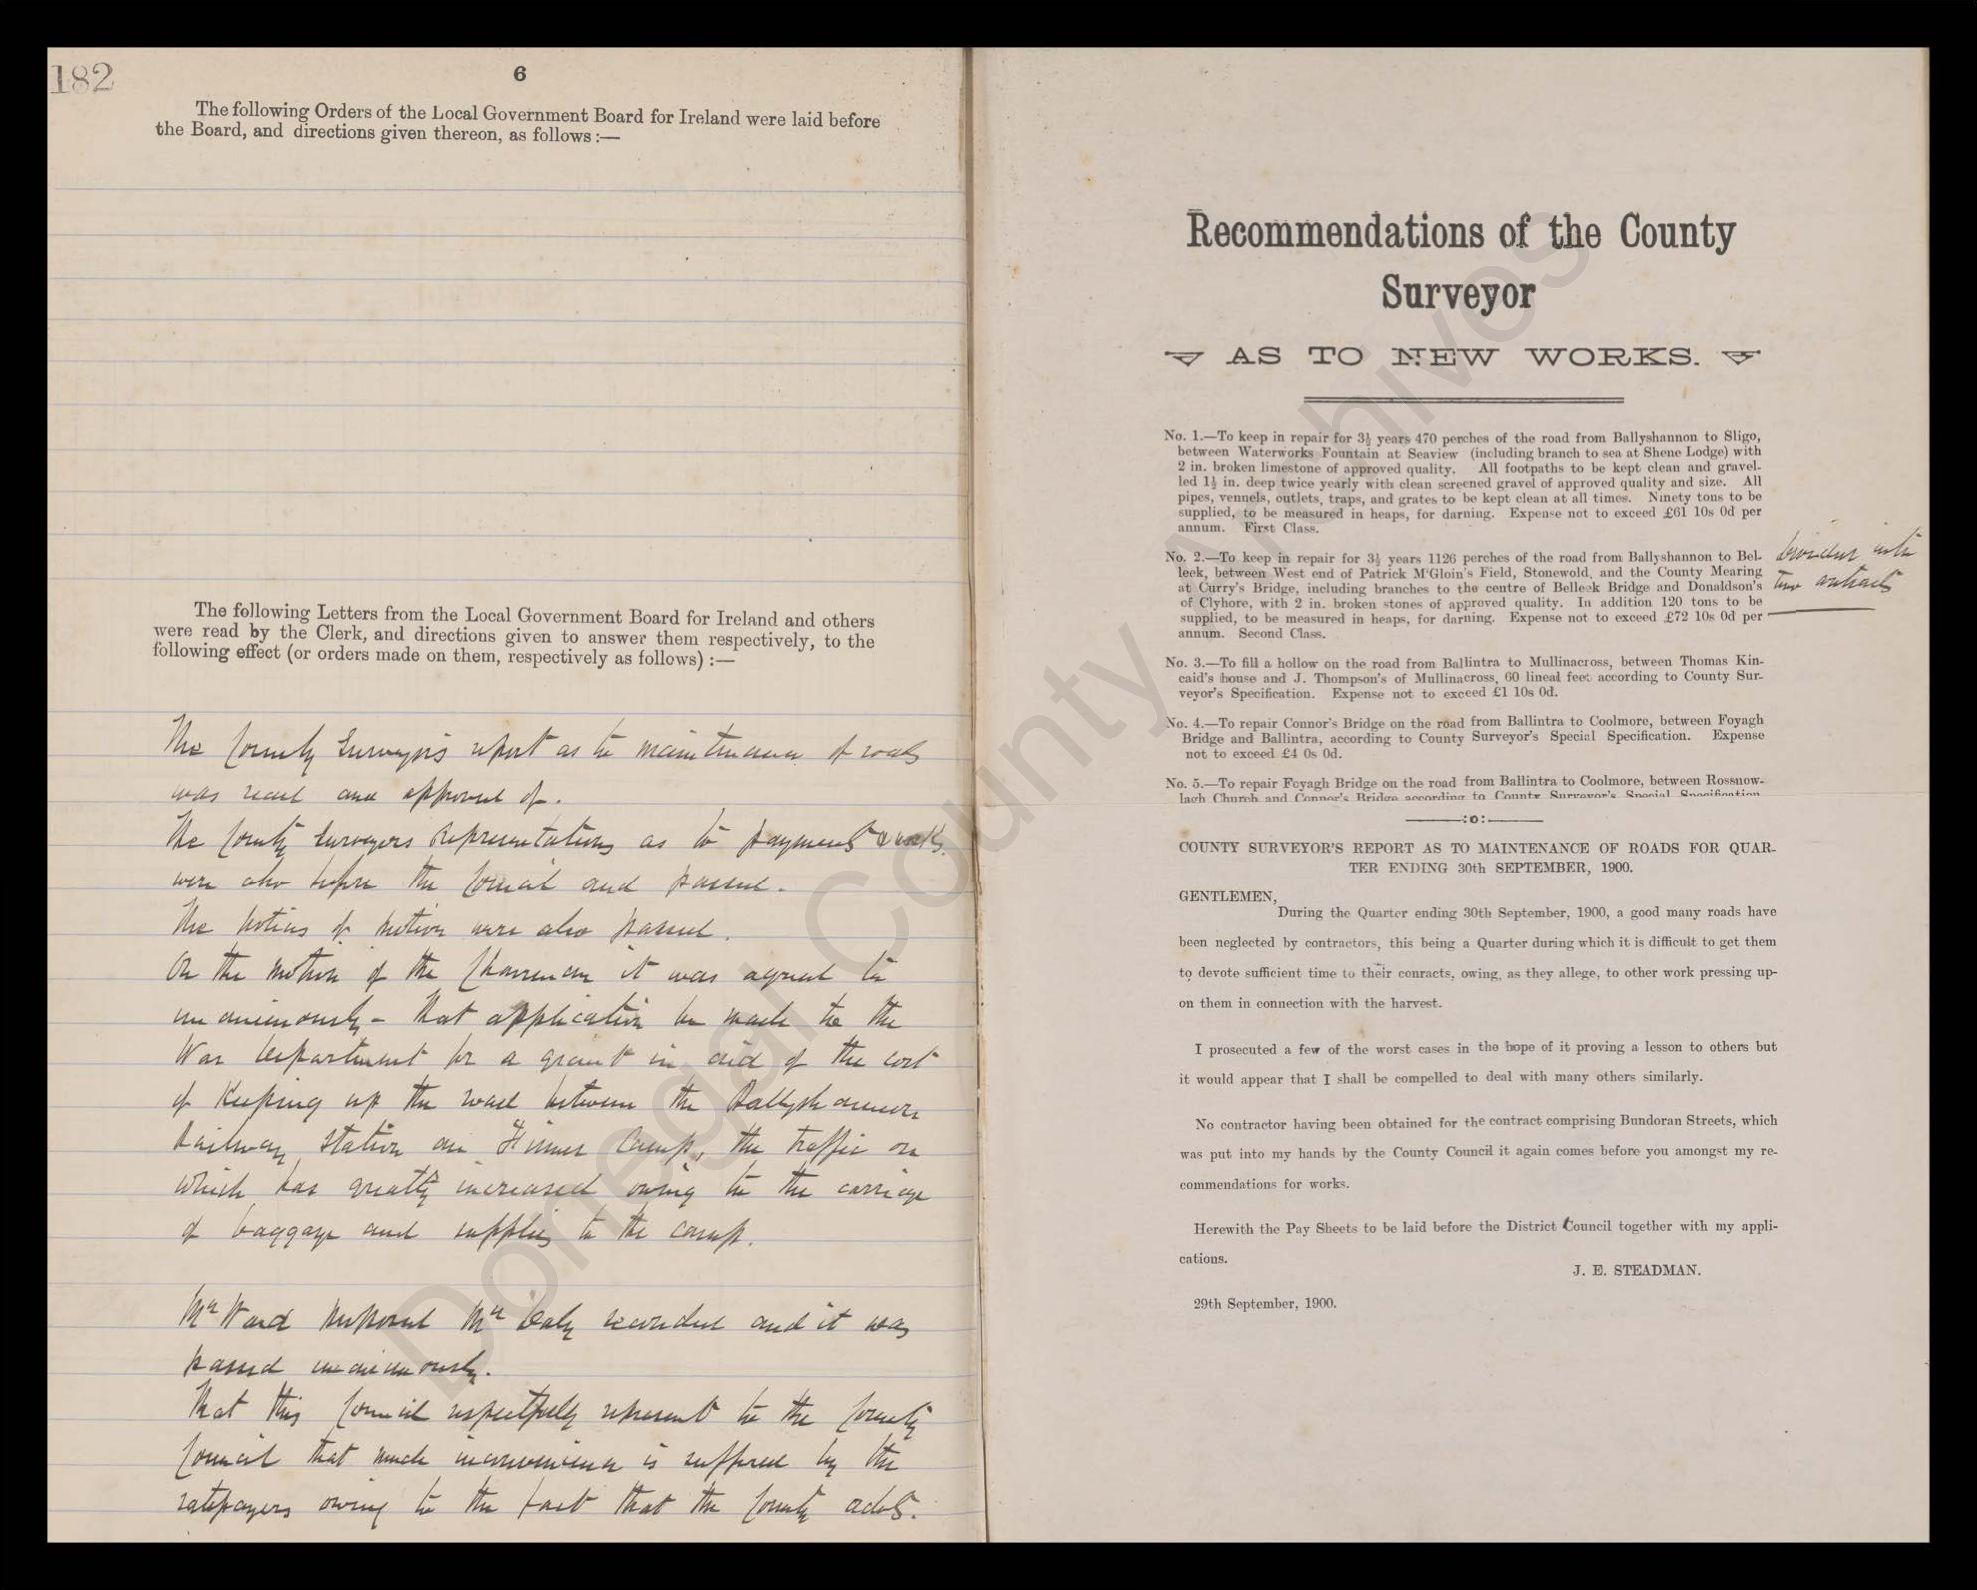 182
6
The following Orders of the Local Government Board for Ireland were laid before
the Board, and directions given thereon, as follows :—
The following Letters from the Local Government Board for Ireland and others
were read by the Clerk, and directions given to answer them respectively, to the
following effect (or orders made on them, respectively as follows) :—
The County Surveyor's report as to maintenance of roads
was read and approved of.
The County Surveyors Representations as to payments & works
were also before the Council and passed.
The notices of motion were also passed.
On the motion of the Chairman it was agreed to
unanimously - That application be made to the
War Department for a grant in aid of the cost
of Keeping up the road between the Ballyshannon
Railway Station and Finner Camp, the traffic on
which has greatly increased owing to the carriage
of baggage and supplies to the camp.
Mr Ward proposed Mr Daly seconded and it was
passed unanimously.
That this Council respectfully represent to the County
Council that much inconvenience is suffered by the
ratepayers owing to the fact that the County advts.
Recommendations of the County
Surveyor
AS TO NEW WORKS.
No. 1.—To keep in repair for 3½ years 470 perches of the road from Ballyshannon to Sligo,
between Waterworks Fountain at Seaview (including branch to sea at Shene Lodge) with
2 in. broken limestone of approved quality. All footpaths to be kept clean and gravel-
led 1½ in. deep twice yearly with clean screened gravel of approved quality and size. All
pipes, vennels, outlets, traps, and grates to be kept clean at all times. Ninety tons to be
supplied, to be measured in heaps, for darning. Expense not to exceed £61 10s 0d per
annum. First Class.
No. 2.—To keep in repair for 3½ years 1126 perches of the road from Ballyshannon to Bel-
leek, between West end of Patrick M'Gloin's Field, Stonewold, and the County Mearing
at Curry's Bridge, including branches to the centre of Belleek Bridge and Donaldson's
of Clyhore, with 2 in. broken stones of approved quality. In addition 120 tons to be
supplied, to be measured in heaps, for darning. Expense not to exceed £72 10s 0d per
annum. Second Class.
into
two contracts
No. 3.—To fill a hollow on the road from Ballintra to Mullinacross, between Thomas Kin-
caid's house and J. Thompson's of Mullinacross, 60 lineal feet according to County Sur-
veyor's Specification. Expense not to exceed £1 10s 0d.
No. 4.—To repair Connor's Bridge on the road from Ballintra to Coolmore, between Foyagh
Bridge and Ballintra, according to County Surveyor's Special Specification. Expense
not to exceed £4 0s 0d.
No. 5.—To repair Foyagh Bridge on the road from Ballintra to Coolmore, between Rossnow-
lagh Church and Connor's Bridge according to County Surveyor's Special Specification
:o:
COUNTY SURVEYOR'S REPORT AS TO MAINTENANCE OF ROADS FOR QUAR-
TER ENDING 30th SEPTEMBER, 1900.
GENTLEMEN,
During the Quarter ending 30th September, 1900, a good many roads have
been neglected by contractors, this being a Quarter during which it is difficult to get them
to devote sufficient time to their conracts, owing, as they allege, to other work pressing up-
on them in connection with the harvest.
I prosecuted a few of the worst cases in the hope of it proving a lesson to others but
it would appear that I shall be compelled to deal with many others similarly.
No contractor having been obtained for the contract comprising Bundoran Streets, which
was put into my hands by the County Council it again comes before you amongst my re-
commendations for works.
Herewith the Pay Sheets to be laid before the District Council together with my appli-
cations.
J. E. STEADMAN.
29th September, 1900.
Donegal County Archives